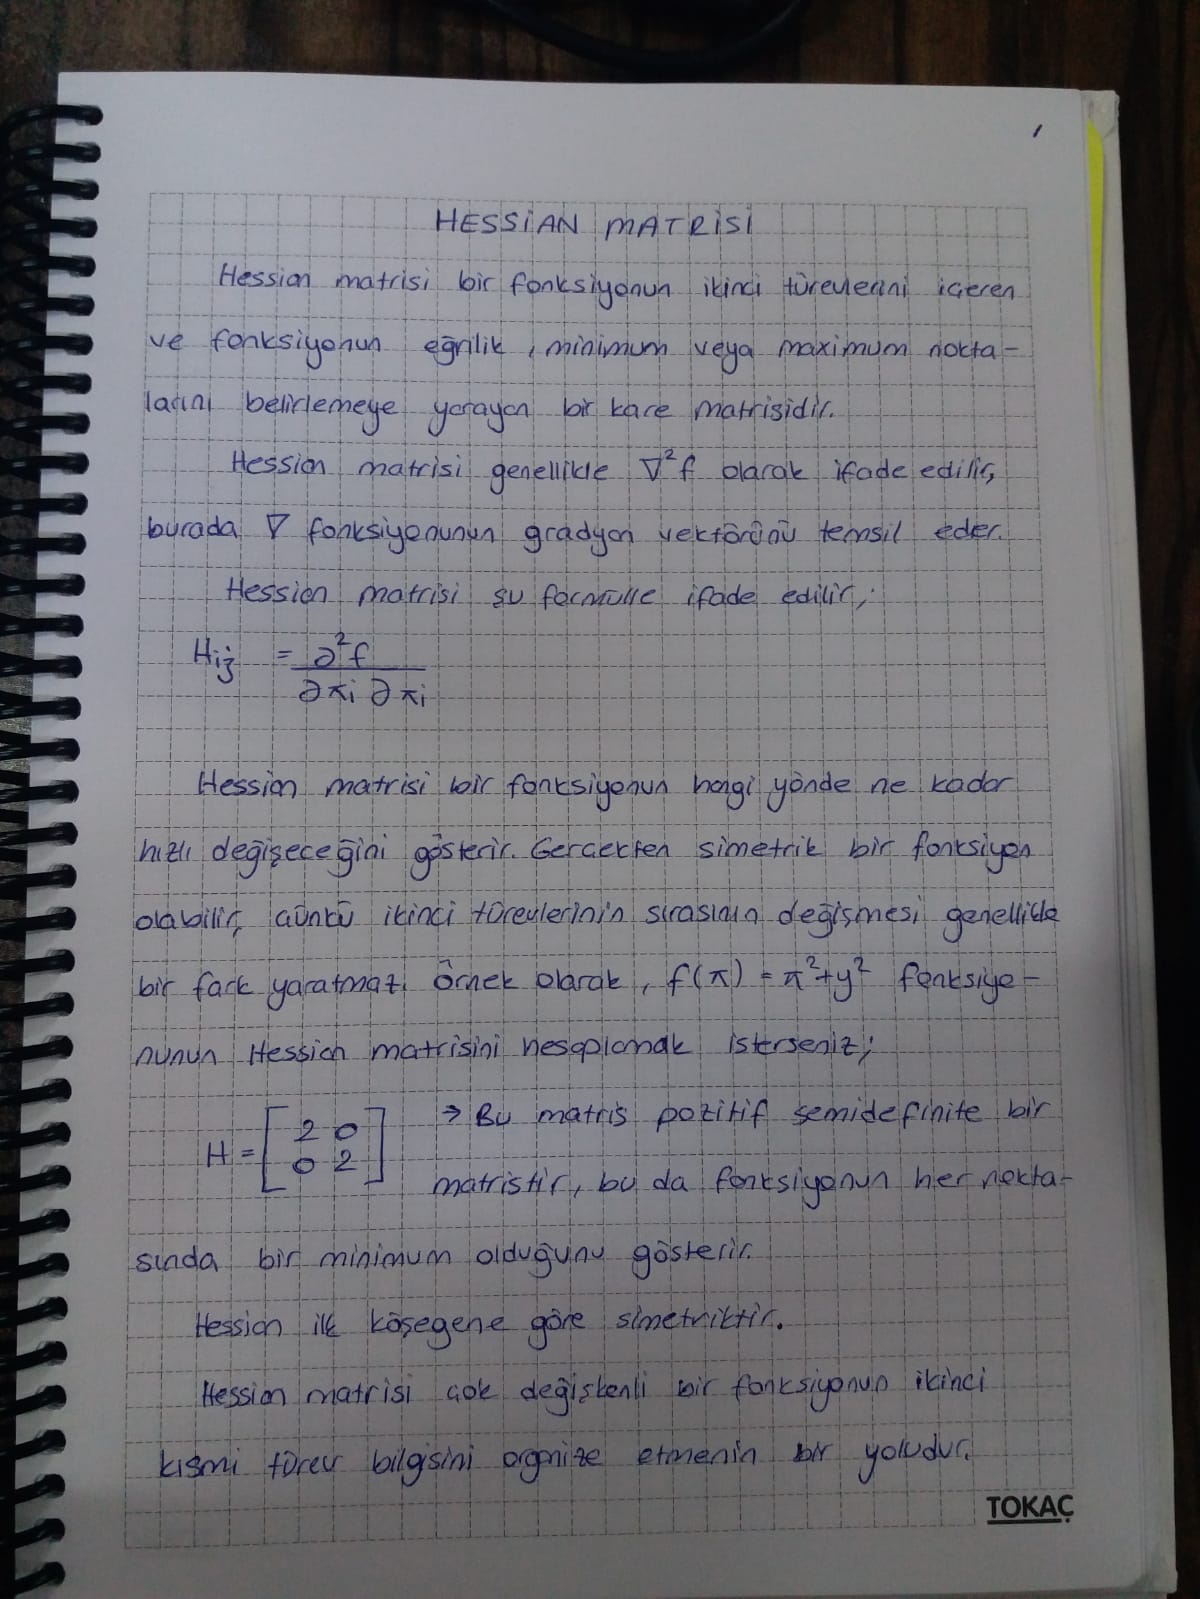 1
HESSİAN MATRİSİ
Hessian matrisi bir fonksiyonun ikinci türevlerini içeren
ve fonksiyonun eğrilik, minimum veya maximum nokta-
larını belirlemeye yarayan bir kare matrisidir.
Hessian matrisi genellikle ∇²f olarak ifade edilir,
burada ∇ fonksiyonunun gradyan vektörünü temsil eder.
Hessian matrisi şu formülle ifade edilir;
Hij = ∂²f
∂xi ∂xi
Hessian matrisi bir fonksiyonun hangi yönde ne kadar
hızlı değişeceğini gösterir. Gerçekten simetrik bir fonksiyon
olabilir, çünkü ikinci türevlerinin sırasının değişmesi genellikle
bir fark yaratmaz. Örnek olarak, f(x) = x²+y² fonksiyo-
nunun Hessian matrisini hesaplamak isterseniz;
H = [2 0
0 2] → Bu matris pozitif semidefinite bir
matristir, bu da fonksiyonun her nokta-
sında bir minimum olduğunu gösterir.
Hessian ilk köşegene göre simetriktir.
Hessian matrisi çok değişkenli bir fonksiyonun ikinci
kısmi türev bilgisini organize etmenin bir yoludur.
TOKAÇ